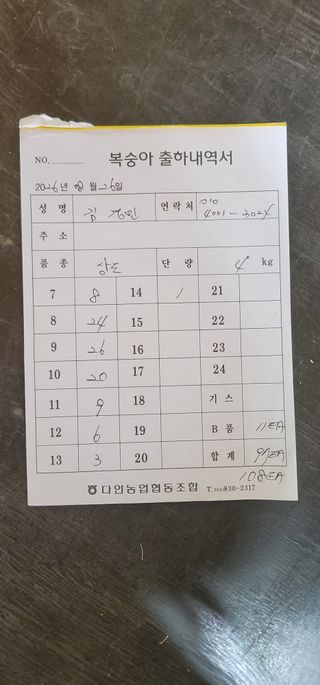 NO.
복숭아 출하내역서
2026년 월 26일
성 명 김 연락처 010 4001-3024
주 소
품 종 단 량 4 kg
7 8 14 1 21
8 24 15 22
9 26 16 23
10 20 17 24
11 9 18 기 스
12 6 19 B 품 11EA
13 3 20 합 계 97EA
108EA
다인농업협동조합 T.054)830-2317